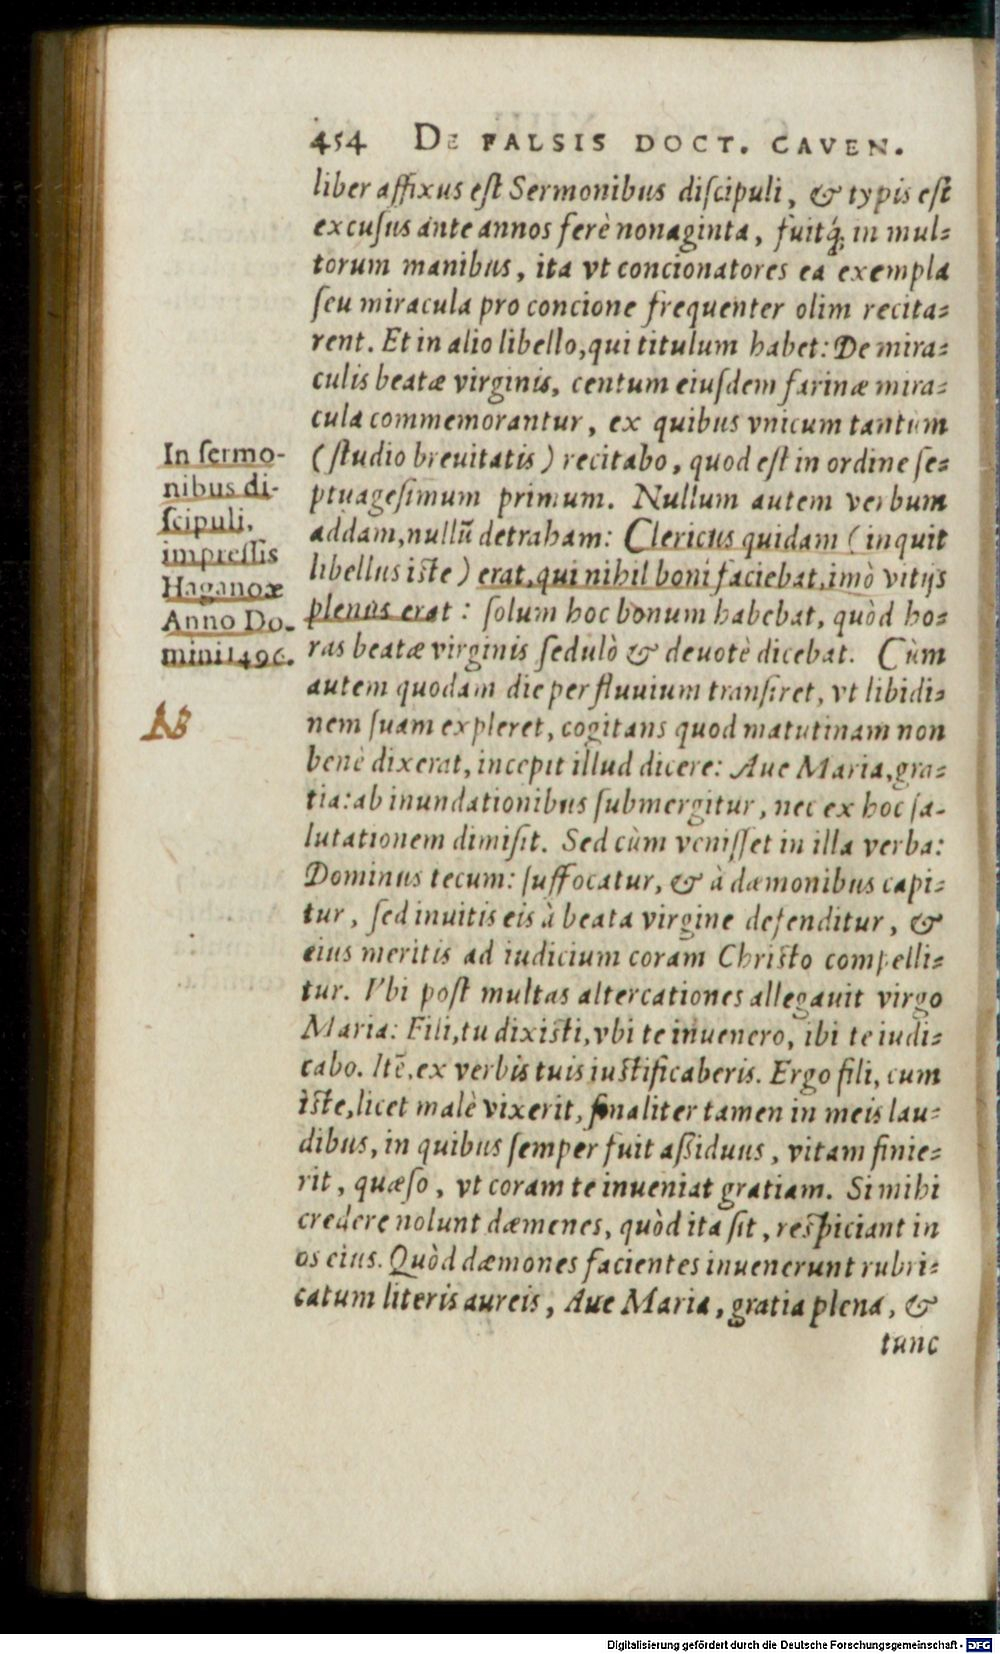 454 DE FALSIS DOCT. CAVEN.
liber affixus eſt Sermonibus diſcipuli, & typis eſt
excuſus ante annos ferè nonaginta, fuitq́; in mul=
torum manibus, ita vt concionatores ea exempla
ſeu miracula pro concione frequenter olim recita=
rent. Et in alio libello, qui titulum habet: De mira=
culis beatæ virginis, centum eiuſdem farinæ mira=
cula commemorantur, ex quibus vnicum tantum
(ſtudio breuitatis) recitabo, quod eſt in ordine ſe=
ptuageſimum primum. Nullum autem verbum
addam, nullū detraham: Clericus quidam (inquit
libellus iſte) erat, qui nihil boni faciebat, imò vitijs
plenus erat: ſolum hoc bonum habebat, quòd ho=
ras beatæ virginis ſedulò & deuotè dicebat. Cùm
autem quodam die per fluuium tranſiret, vt libidi=
nem ſuam expleret, cogitans quod matutinam non
benè dixerat, incepit illud dicere: Aue Maria, gra=
tia: ab inundationibus ſubmergitur, nec ex hoc ſa-
lutationem dimiſit. Sed cùm veniſſet in illa verba:
Dominus tecum: ſuffocatur, & à dæmonibus capi=
tur, ſed inuitis eis à beata virgine defenditur, &
eius meritis ad iudicium coram Chriſto compelli=
tur. Vbi poſt multas altercationes allegauit virgo
Maria: Fili, tu dixiſti, vbi te inuenero, ibi te iudi=
cabo. Itē, ex verbis tuis iuſtificaberis. Ergo fili, cum
iſte, licet malè vixerit, finaliter tamen in meis lau=
dibus, in quibus ſemper fuit aßiduus, vitam finie=
rit, quæſo, vt coram te inueniat gratiam. Si mihi
credere nolunt dæmenes, quòd ita ſit, reſpiciant in
os eius. Quòd dæmones facientes inuenerunt rubri=
catum literis aureis, Aue Maria, gratia plena, &
tunc
In ſermo-
nibus di-
ſcipuli,
impreſſis
Haganoæ
Anno Do-
mini 1496.
NB
Digitalisierung gefördert durch die Deutsche Forschungsgemeinschaft - DFG